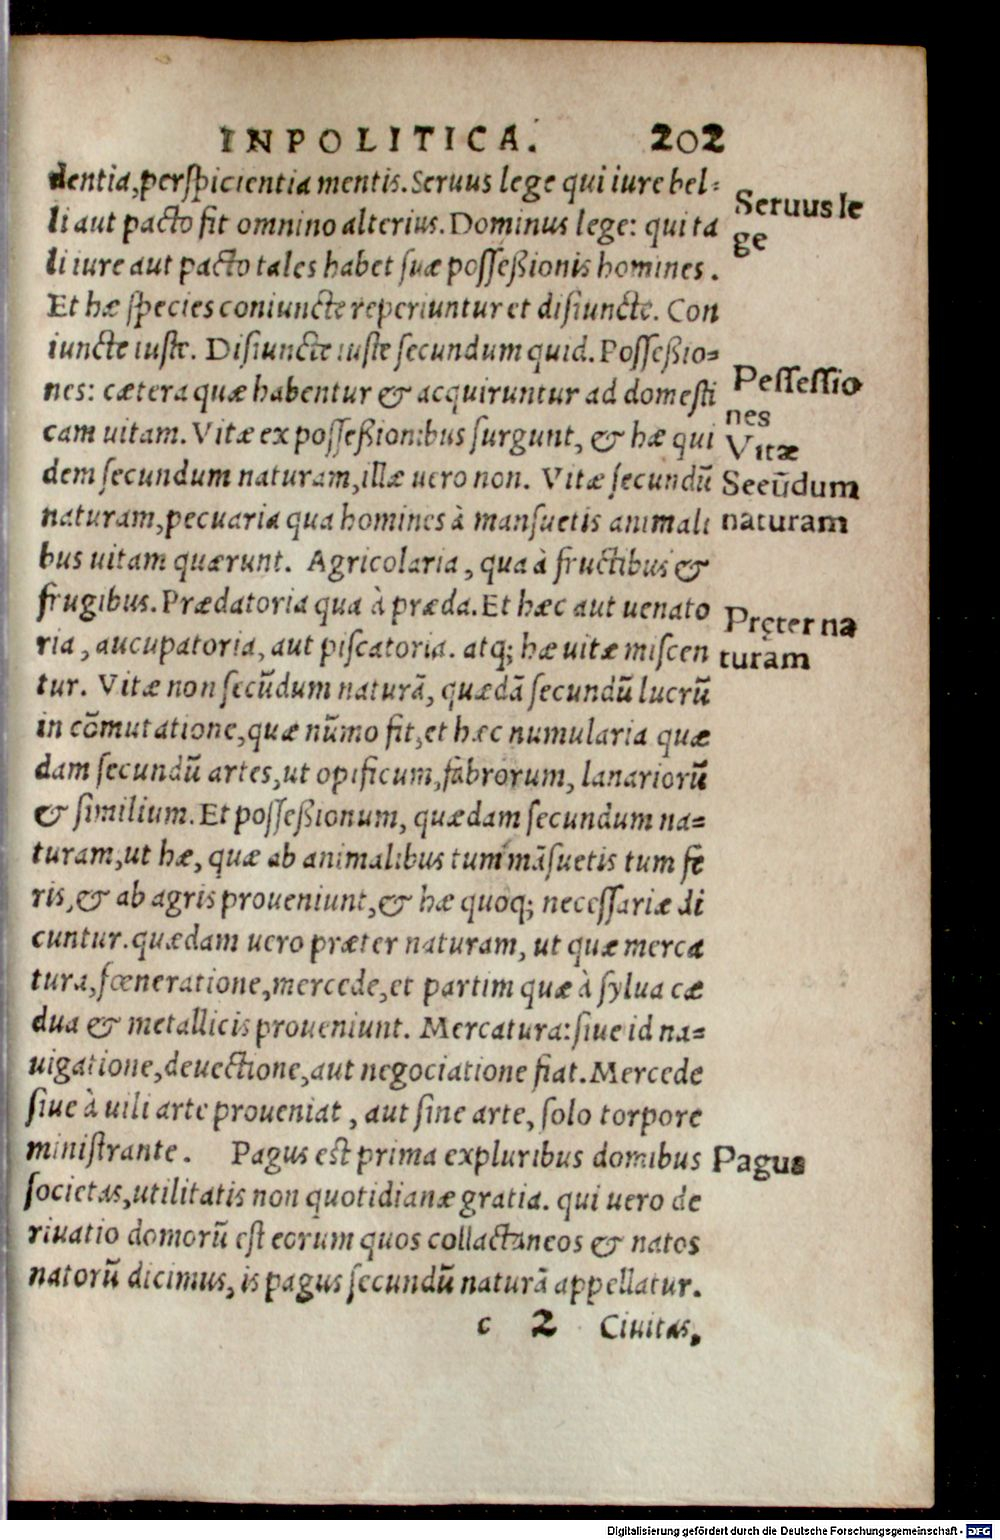 INPOLITICA. 202
dentia,perspicientia mentis.Seruus lege qui iure bel-
li aut pacto fit omnino alterius.Dominus lege: qui ta
li iure aut pacto tales habet suæ posseßionis homines.
Et hæ species coniuncte reperiuntur et disiuncte. Con
iuncte iuste. Disiuncte iuste secundum quid.Posseßio-
nes: cætera quæ habentur & acquiruntur ad domesti
cam uitam. Vitæ ex posseßionibus surgunt, & hæ qui
dem secundum naturam,illæ uero non. Vitæ secundũ
naturam,pecuaria qua homines à mansuetis animali
bus uitam quærunt. Agricolaria, qua à fructibus &
frugibus.Prædatoria qua à præda.Et hæc aut uenato
ria, aucupatoria, aut piscatoria. atq; hæ uitæ miscen
tur. Vitæ non secũdum naturã, quædã secundũ lucrũ
in cõmutatione,quæ nũmo fit,et hæc numularia quæ
dam secundũ artes,ut opificum,fabrorum, lanariorũ
& similium.Et posseßionum, quædam secundum na-
turam,ut hæ, quæ ab animalibus tum mãsuetis tum fe
ris,& ab agris proueniunt,& hæ quoq; necessariæ di
cuntur.quædam uero præter naturam, ut quæ merca
tura,fœneratione,mercede,et partim quæ à sylua cæ
dua & metallicis proueniunt. Mercatura:siue id na-
uigatione,deuectione,aut negociatione fiat.Mercede
siue à uili arte proueniat, aut sine arte, solo torpore
ministrante. Pagus est prima ex pluribus domibus
societas,utilitatis non quotidianæ gratia. qui uero de
riuatio domorũ est eorum quos collactaneos & natos
natorũ dicimus, is pagus secundũ naturã appellatur.
c 2 Ciuitas,
Seruus le
ge
Pessessio
nes
Vitæ
Secũdum
naturam
Pręter na
turam
Pagus
Digitalisierung gefördert durch die Deutsche Forschungsgemeinschaft - DFG